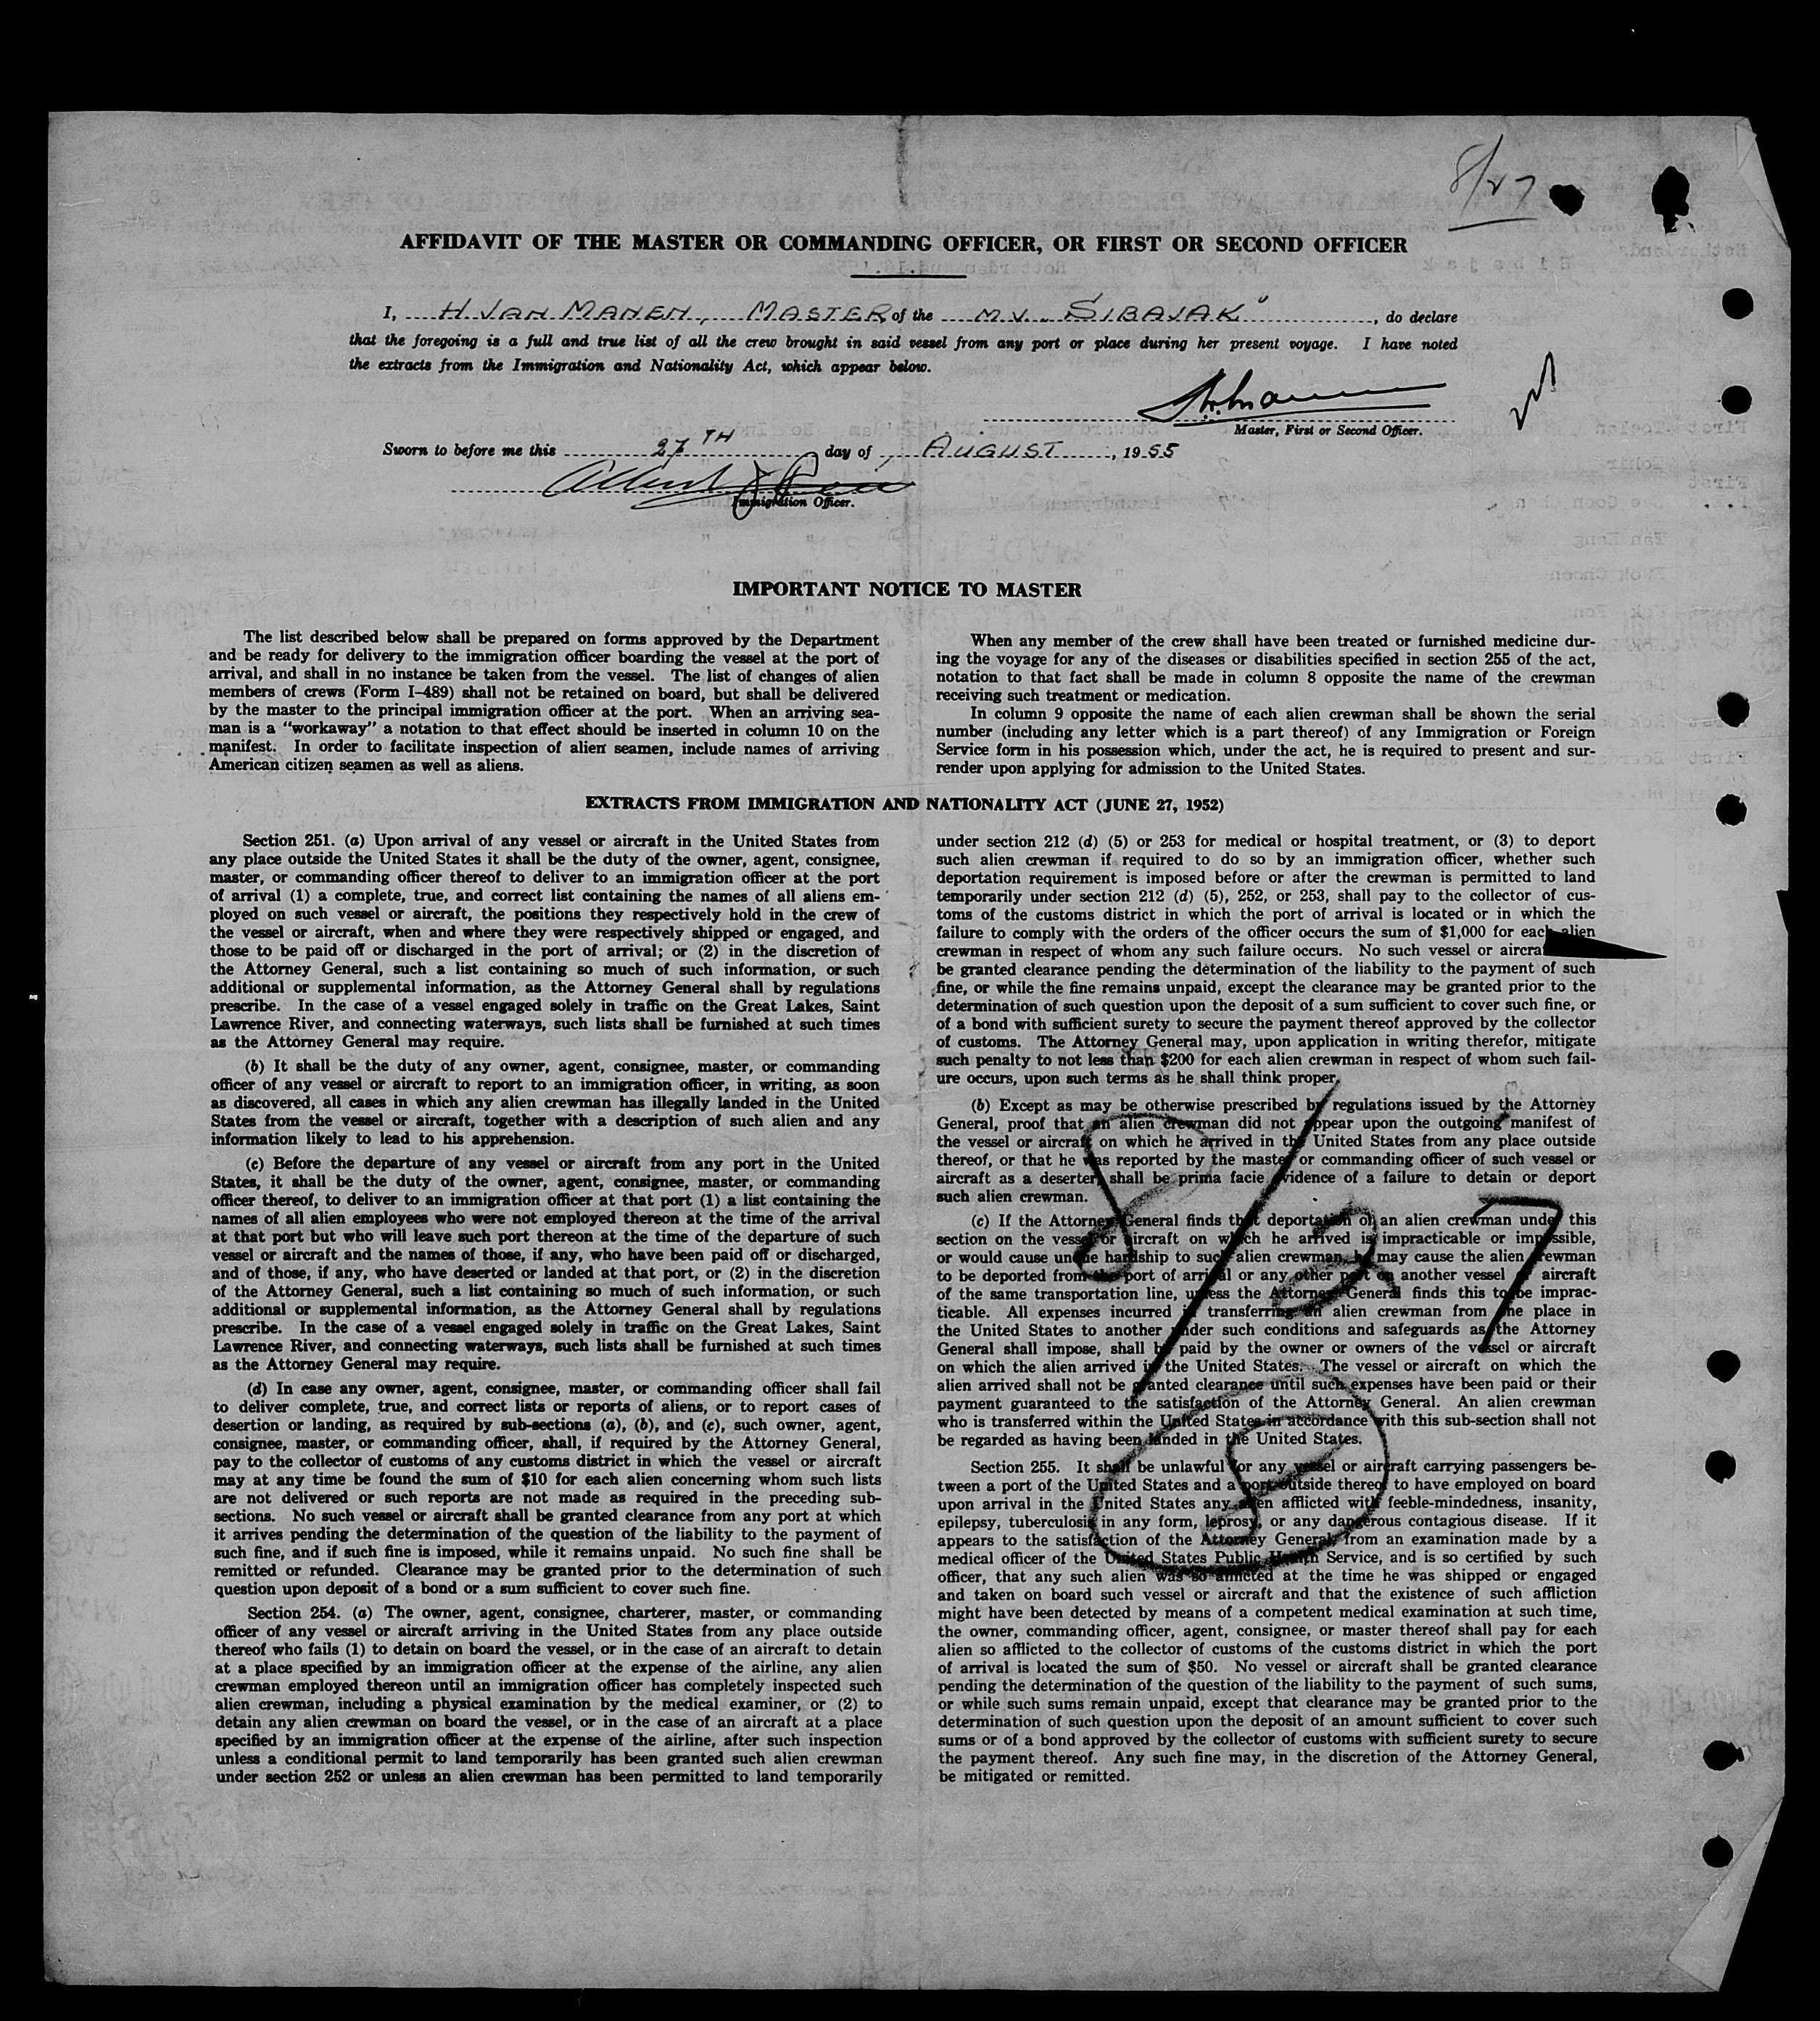 8/27
AFFIDAVIT OF THE MASTER OR COMMANDING OFFICER, OR FIRST OR SECOND OFFICER
I, H VAN MANEN, MASTER of the M.V. "SIBAJAK", do declare
that the foregoing is a full and true list of all the crew brought in said vessel from any port or place during her present voyage. I have noted
the extracts from the Immigration and Nationality Act, which appear below.
Master, First or Second Officer.
Sworn to before me this 27TH day of AUGUST, 1955
Immigration Officer.
IMPORTANT NOTICE TO MASTER
The list described below shall be prepared on forms approved by the Department
and be ready for delivery to the immigration officer boarding the vessel at the port of
arrival, and shall in no instance be taken from the vessel. The list of changes of alien
members of crews (Form I–489) shall not be retained on board, but shall be delivered
by the master to the principal immigration officer at the port. When an arriving sea-
man is a “workaway” a notation to that effect should be inserted in column 10 on the
manifest. In order to facilitate inspection of alien seamen, include names of arriving
American citizen seamen as well as aliens.
When any member of the crew shall have been treated or furnished medicine dur-
ing the voyage for any of the diseases or disabilities specified in section 255 of the act,
notation to that fact shall be made in column 8 opposite the name of the crewman
receiving such treatment or medication.
In column 9 opposite the name of each alien crewman shall be shown the serial
number (including any letter which is a part thereof) of any Immigration or Foreign
Service form in his possession which, under the act, he is required to present and sur-
render upon applying for admission to the United States.
EXTRACTS FROM IMMIGRATION AND NATIONALITY ACT (JUNE 27, 1952)
Section 251. (a) Upon arrival of any vessel or aircraft in the United States from
any place outside the United States it shall be the duty of the owner, agent, consignee,
master, or commanding officer thereof to deliver to an immigration officer at the port
of arrival (1) a complete, true, and correct list containing the names of all aliens em-
ployed on such vessel or aircraft, the positions they respectively hold in the crew of
the vessel or aircraft, when and where they were respectively shipped or engaged, and
those to be paid off or discharged in the port of arrival; or (2) in the discretion of
the Attorney General, such a list containing so much of such information, or such
additional or supplemental information, as the Attorney General shall by regulations
prescribe. In the case of a vessel engaged solely in traffic on the Great Lakes, Saint
Lawrence River, and connecting waterways, such lists shall be furnished at such times
as the Attorney General may require.
(b) It shall be the duty of any owner, agent, consignee, master, or commanding
officer of any vessel or aircraft to report to an immigration officer, in writing, as soon
as discovered, all cases in which any alien crewman has illegally landed in the United
States from the vessel or aircraft, together with a description of such alien and any
information likely to lead to his apprehension.
(c) Before the departure of any vessel or aircraft from any port in the United
States, it shall be the duty of the owner, agent, consignee, master, or commanding
officer thereof, to deliver to an immigration officer at that port (1) a list containing the
names of all alien employees who were not employed thereon at the time of the arrival
at that port but who will leave such port thereon at the time of the departure of such
vessel or aircraft and the names of those, if any, who have been paid off or discharged,
and of those, if any, who have deserted or landed at that port, or (2) in the discretion
of the Attorney General, such a list containing so much of such information, or such
additional or supplemental information, as the Attorney General shall by regulations
prescribe. In the case of a vessel engaged solely in traffic on the Great Lakes, Saint
Lawrence River, and connecting waterways, such lists shall be furnished at such times
as the Attorney General may require.
(d) In case any owner, agent, consignee, master, or commanding officer shall fail
to deliver complete, true, and correct lists or reports of aliens, or to report cases of
desertion or landing, as required by sub-sections (a), (b), and (c), such owner, agent,
consignee, master, or commanding officer, shall, if required by the Attorney General,
pay to the collector of customs of any customs district in which the vessel or aircraft
may at any time be found the sum of $10 for each alien concerning whom such lists
are not delivered or such reports are not made as required in the preceding sub-
sections. No such vessel or aircraft shall be granted clearance from any port at which
it arrives pending the determination of the question of the liability to the payment of
such fine, and if such fine is imposed, while it remains unpaid. No such fine shall be
remitted or refunded. Clearance may be granted prior to the determination of such
question upon deposit of a bond or a sum sufficient to cover such fine.
Section 254. (a) The owner, agent, consignee, charterer, master, or commanding
officer of any vessel or aircraft arriving in the United States from any place outside
thereof who fails (1) to detain on board the vessel, or in the case of an aircraft to detain
at a place specified by an immigration officer at the expense of the airline, any alien
crewman employed thereon until an immigration officer has completely inspected such
alien crewman, including a physical examination by the medical examiner, or (2) to
detain any alien crewman on board the vessel, or in the case of an aircraft at a place
specified by an immigration officer at the expense of the airline, after such inspection
unless a conditional permit to land temporarily has been granted such alien crewman
under section 252 or unless an alien crewman has been permitted to land temporarily
under section 212 (d) (5) or 253 for medical or hospital treatment, or (3) to deport
such alien crewman if required to do so by an immigration officer, whether such
deportation requirement is imposed before or after the crewman is permitted to land
temporarily under section 212 (d) (5), 252, or 253, shall pay to the collector of cus-
toms of the customs district in which the port of arrival is located or in which the
failure to comply with the orders of the officer occurs the sum of $1,000 for each alien
crewman in respect of whom any such failure occurs. No such vessel or aircra
be granted clearance pending the determination of the liability to the payment of such
fine, or while the fine remains unpaid, except the clearance may be granted prior to the
determination of such question upon the deposit of a sum sufficient to cover such fine, or
of a bond with sufficient surety to secure the payment thereof approved by the collector
of customs. The Attorney General may, upon application in writing therefor, mitigate
such penalty to not less than $200 for each alien crewman in respect of whom such fail-
ure occurs, upon such terms as he shall think proper.
(b) Except as may be otherwise prescribed by regulations issued by the Attorney
General, proof that an alien crewman did not appear upon the outgoing manifest of
the vessel or aircraft on which he arrived in the United States from any place outside
thereof, or that he was reported by the master or commanding officer of such vessel or
aircraft as a deserter, shall be prima facie evidence of a failure to detain or deport
such alien crewman.
(c) If the Attorney General finds that deportation of an alien crewman under this
section on the vessel or aircraft on which he arrived is impracticable or impossible,
or would cause undue hardship to such alien crewman, he may cause the alien crewman
to be deported from the port of arrival or any other port on another vessel or aircraft
of the same transportation line, unless the Attorney General finds this to be imprac-
ticable. All expenses incurred in transferring an alien crewman from one place in
the United States to another under such conditions and safeguards as the Attorney
General shall impose, shall be paid by the owner or owners of the vessel or aircraft
on which the alien arrived in the United States. The vessel or aircraft on which the
alien arrived shall not be granted clearance until such expenses have been paid or their
payment guaranteed to the satisfaction of the Attorney General. An alien crewman
who is transferred within the United States in accordance with this sub-section shall not
be regarded as having been landed in the United States.
8/27
Section 255. It shall be unlawful for any vessel or aircraft carrying passengers be-
tween a port of the United States and a port outside thereof to have employed on board
upon arrival in the United States any alien afflicted with feeble-mindedness, insanity,
epilepsy, tuberculosis in any form, leprosy, or any dangerous contagious disease. If it
appears to the satisfaction of the Attorney General, from an examination made by a
medical officer of the United States Public Health Service, and is so certified by such
officer, that any such alien was so afflicted at the time he was shipped or engaged
and taken on board such vessel or aircraft and that the existence of such affliction
might have been detected by means of a competent medical examination at such time,
the owner, commanding officer, agent, consignee, or master thereof shall pay for each
alien so afflicted to the collector of customs of the customs district in which the port
of arrival is located the sum of $50. No vessel or aircraft shall be granted clearance
pending the determination of the question of the liability to the payment of such sums,
or while such sums remain unpaid, except that clearance may be granted prior to the
determination of such question upon the deposit of an amount sufficient to cover such
sums or of a bond approved by the collector of customs with sufficient surety to secure
the payment thereof. Any such fine may, in the discretion of the Attorney General,
be mitigated or remitted.